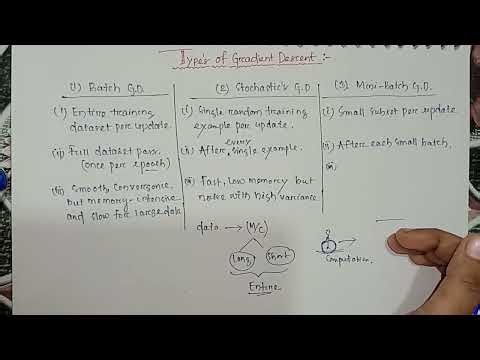 Types of Gradient Descent :-
(1) Batch G.D.
(i) Entire training
dataset per update.
(ii) Full dataset pass.
(once per epoch)
(iii) Smooth convergence,
but memory-intensive
and slow for large data
(2) Stochastic's G.D.
(i) Single random training
example per update.
(ii) After every single example.
(iii) Fast, low memory but
noise with high variance
(3) Mini-batch G.D.
(i) Small subset per update
(ii) After each small batch.
(iii)
data → (M/C)
Long
Short
Entire
Computation.